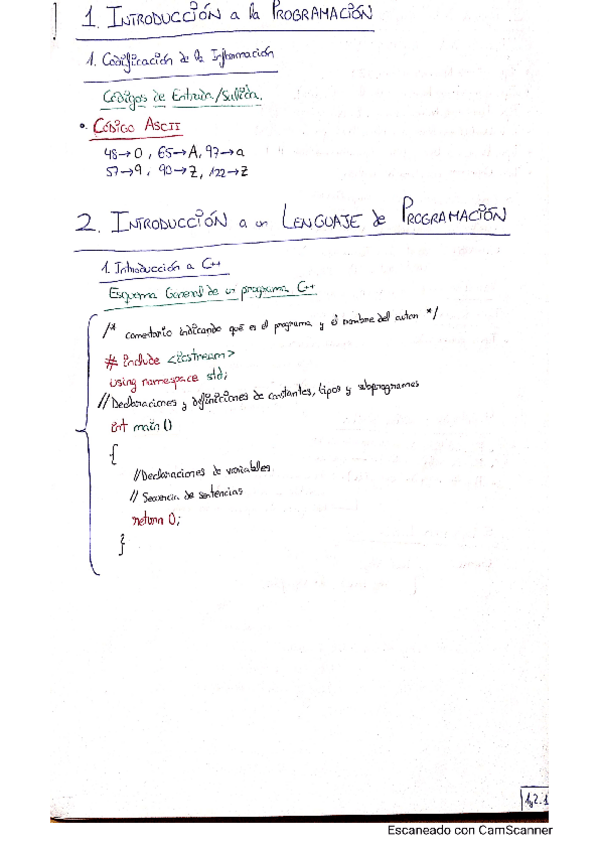 1. INTRODUCCIÓN a la PROGRAMACIÓN
1. Codificación de la Información
Códigos de Entrada/Salida.
• CÓDIGO ASCII
48→0, 65→A, 97→a
57→9, 90→Z, 122→z
2. INTRODUCCIÓN a un LENGUAJE de PROGRAMACIÓN
1. Introducción a C++
Esquema General de un programa C++
/* comentario indicando qué es el programa y el nombre del autor */
# include <iostream>
using namespace std;
//Declaraciones y definiciones de constantes, tipos y subprogramas
int main()
{
//Declaraciones de variables
// Secuencia de sentencias
return 0;
}
1,2.1
Escaneado con CamScanner